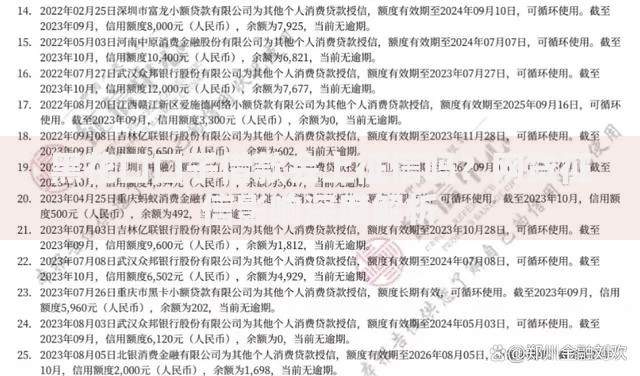 14. 2022年02月25日深圳市富龙小额贷款有限公司为其他个人消费贷款授信,额度有效期至2024年09月10日,可循环使用。截至
2023年09月,信用额度8,000元(人民币),余额为7,925,当前无逾期。
15. 2022年05月03日河南中原消费金融股份有限公司为其他个人消费贷款授信,额度有效期至2024年07月07日,可循环使用。截至
2023年10月,信用额度10,400元(人民币),余额为6,821,当前无逾期。
16. 2022年07月27日武汉众邦银行股份有限公司为其他个人消费贷款授信,额度有效期至2023年07月27日,可循环使用。截至
2023年10月,信用额度12,000元(人民币),余额为7,677,当前无逾期。
17. 2022年08月20日江西赣江新区爱施德网络小额贷款有限公司为其他个人消费贷款授信,额度有效期至2025年09月16日,可循环
使用。截至2023年09月,信用额度3,300元(人民币),余额为0,当前无逾期。
18. 2022年09月08日吉林亿联银行股份有限公司为其他个人消费贷款授信,额度有效期至2023年11月28日,可循环使用。截至
2023年09月,信用额度5,650元(人民币),余额为602,当前无逾期。
19.
余额为3,617,当前无逾期。
20. 2023年04月25日重庆蚂蚁消费金融有限公司
2023年10月,信用额
度500元(人民币),余额为492,
21. 2023年07月03日吉林亿联银行股份有限公司为其他个人消费贷款授信,额度有效期至2023年10月28日,可循环使用。截至
2023年09月,信用额度9,600元(人民币),余额为1,812,当前无逾期。
22. 2023年07月08日武汉众邦银行股份有限公司为其他个人消费贷款授信,额度有效期至2024年07月08日,可循环使用。截至
2023年10月,信用额度6,502元(人民币),余额为4,929,当前无逾期。
23. 2023年07月26日重庆市黑卡小额贷款有限公司为其他个人消费贷款授信,额度长期有效,可循环使用。截至2023年09月,信用
额度5,960元(人民币),余额为202,当前无逾期。
24. 2023年08月03日武汉众邦银行股份有限公司为其他个人消费贷款授信,额度有效期至2024年05月03日,可循环使用。截至
2023年09月,信用额度6,120元(人民币),余额为0,当前无逾期。
25. 2023年08月05日北银消费金融有限公司为其他个人消费贷款授信,额度有效期至2026年08月05日,
10月,信用额度2,000元(人民币),余额为1,698,当前无逾期。
@郑州金融刘欢